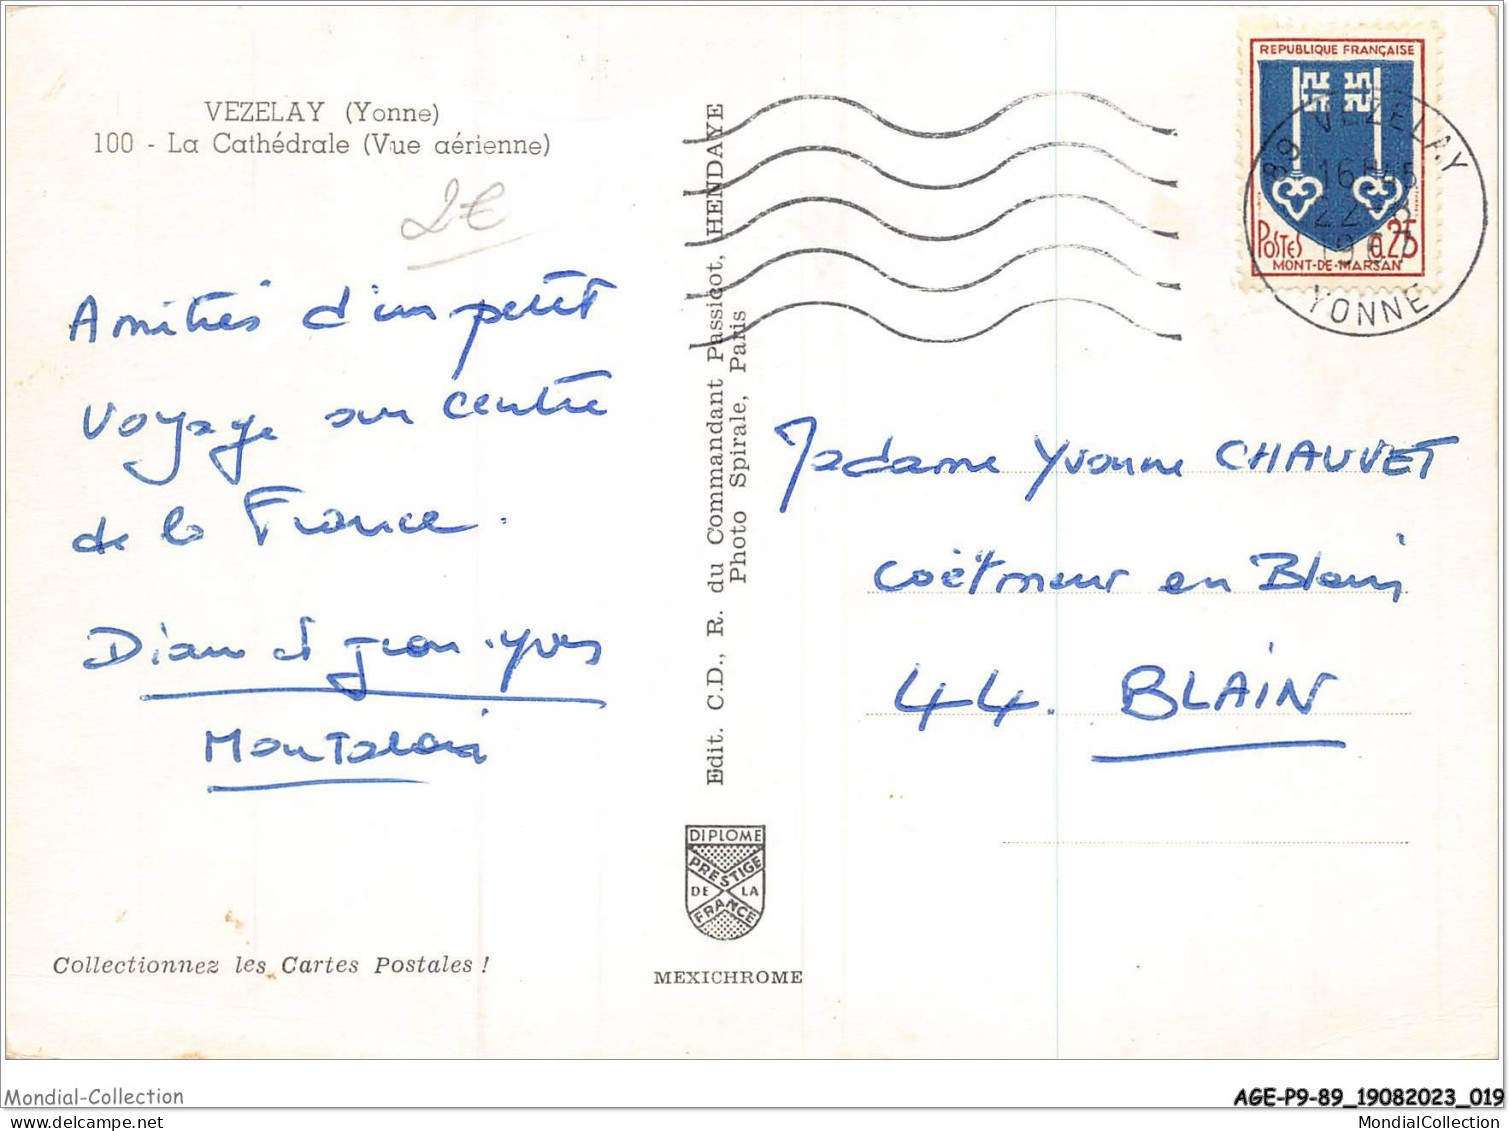 VEZELAY (Yonne)
100 - La Cathédrale (Vue aérienne)
2€
Amitiés d'un petit
voyage au centre
de la France.
Diane et Jean-Yves
Edit. C.D., R. du Commandant Passicot, HENDAYE
Photo Spirale, Paris
DIPLOME
PRESTIGE
DE LA
FRANCE
MEXICHROME
Collectionnez les Cartes Postales !
REPUBLIQUE FRANÇAISE
POSTES 0,25
MONT-DE-MARSAN
89 VEZELAY
16H45
22-8
1967
YONNE
Madame Yvonne CHAUVET
coëtmeur en Blain
44. BLAIN
Mondial-Collection
AGE-P9-89_19082023_019
MondialCollection